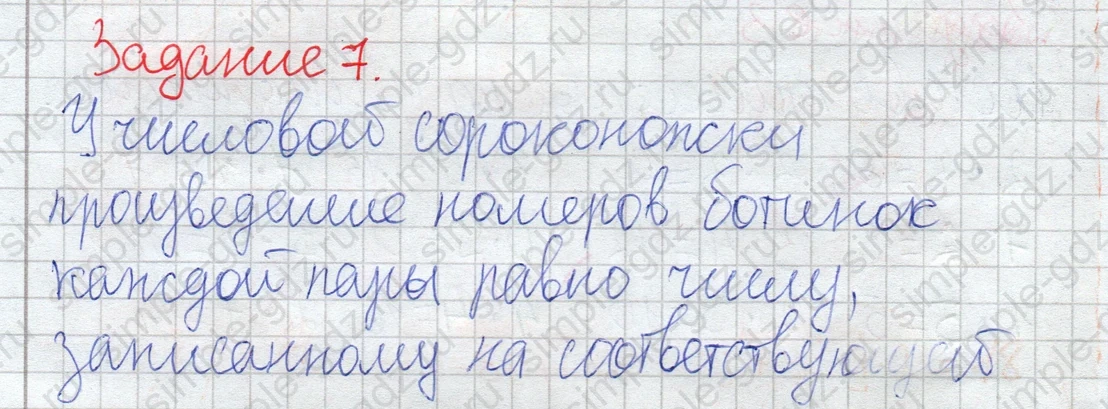 Задание 7.
У числовой сороконожки
произведение номеров ботинок
каждой пары равно числу,
записанному на соответствующей